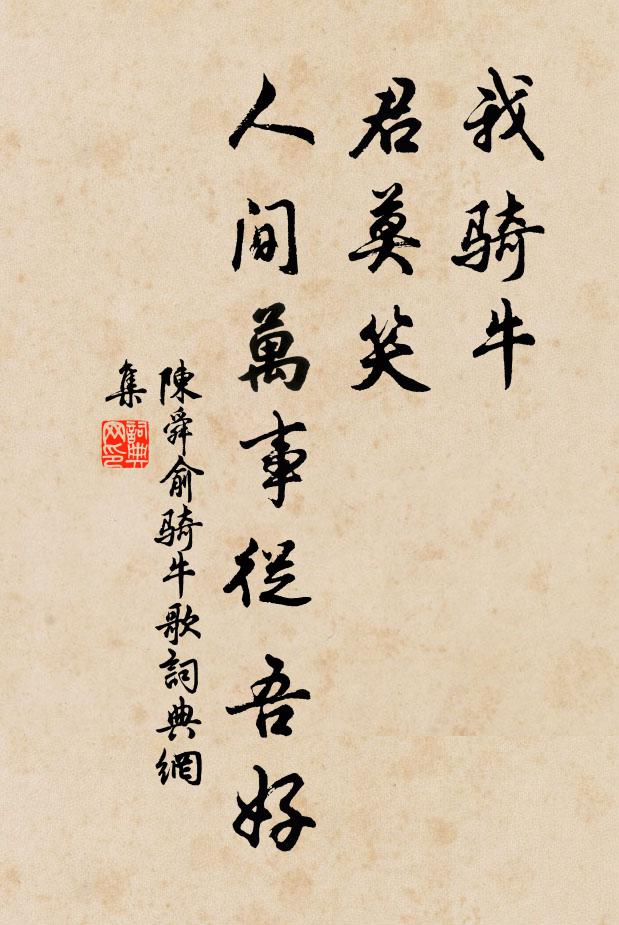 我骑牛
君莫笑
人间萬事從吾好
陳舜俞骑牛歌詞典網
集
詞典
网印